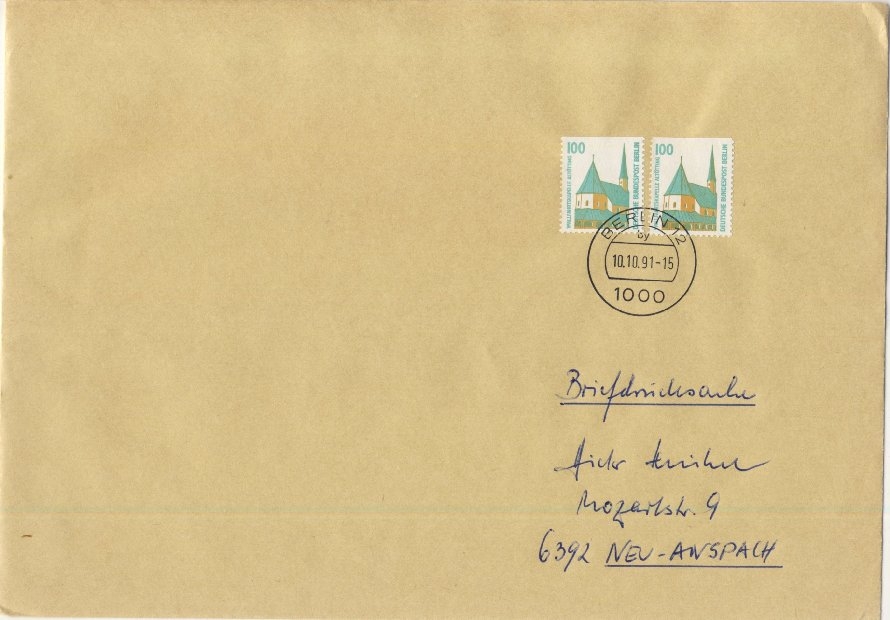 100
WALLFAHRTSKAPELLE ALTÖTTING
DEUTSCHE BUNDESPOST BERLIN
100
WALLFAHRTSKAPELLE ALTÖTTING
DEUTSCHE BUNDESPOST BERLIN
BERLIN 12
by
10.10.91-15
1000
Briefdrucksache
Mozartstr. 9
6392 NEU-ANSPACH